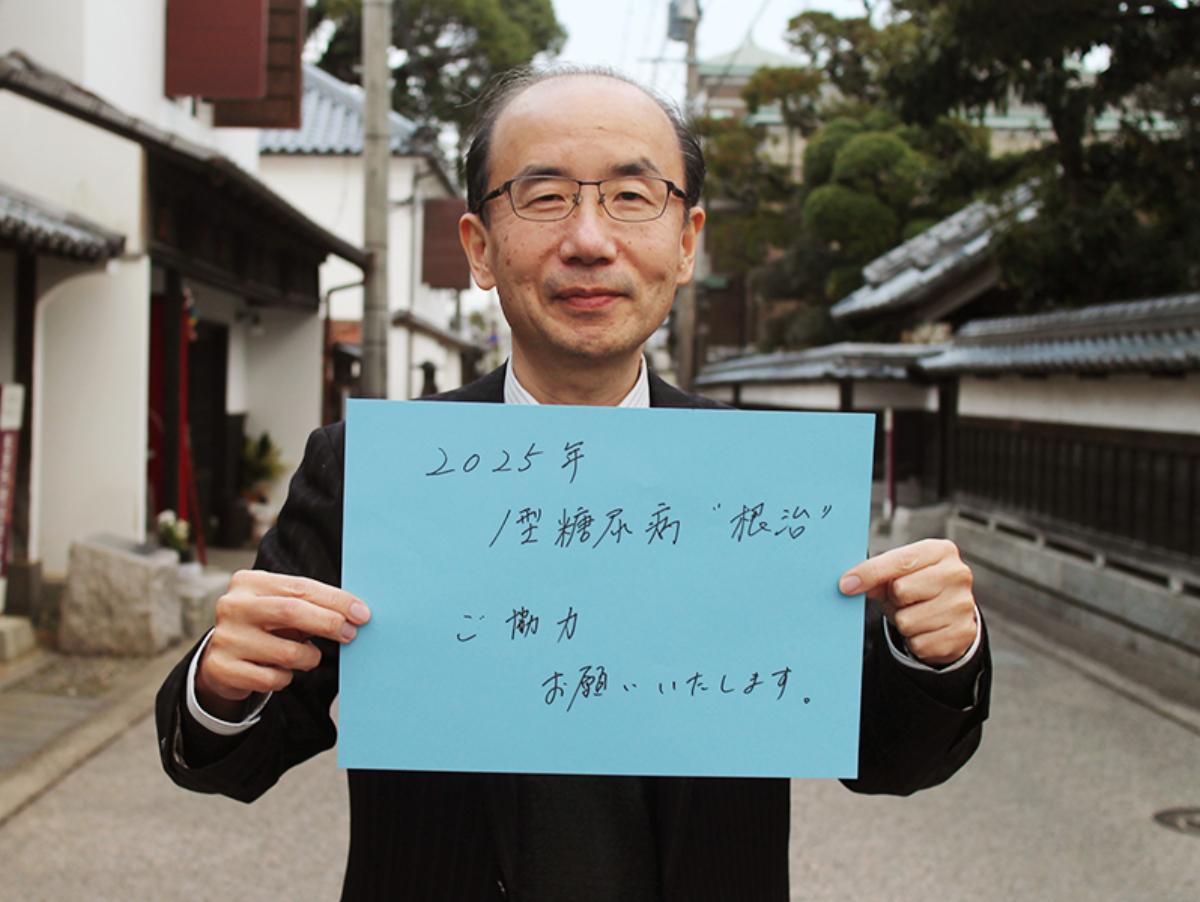 2025年
1型糖尿病 "根治"
ご協力
お願いいたします。